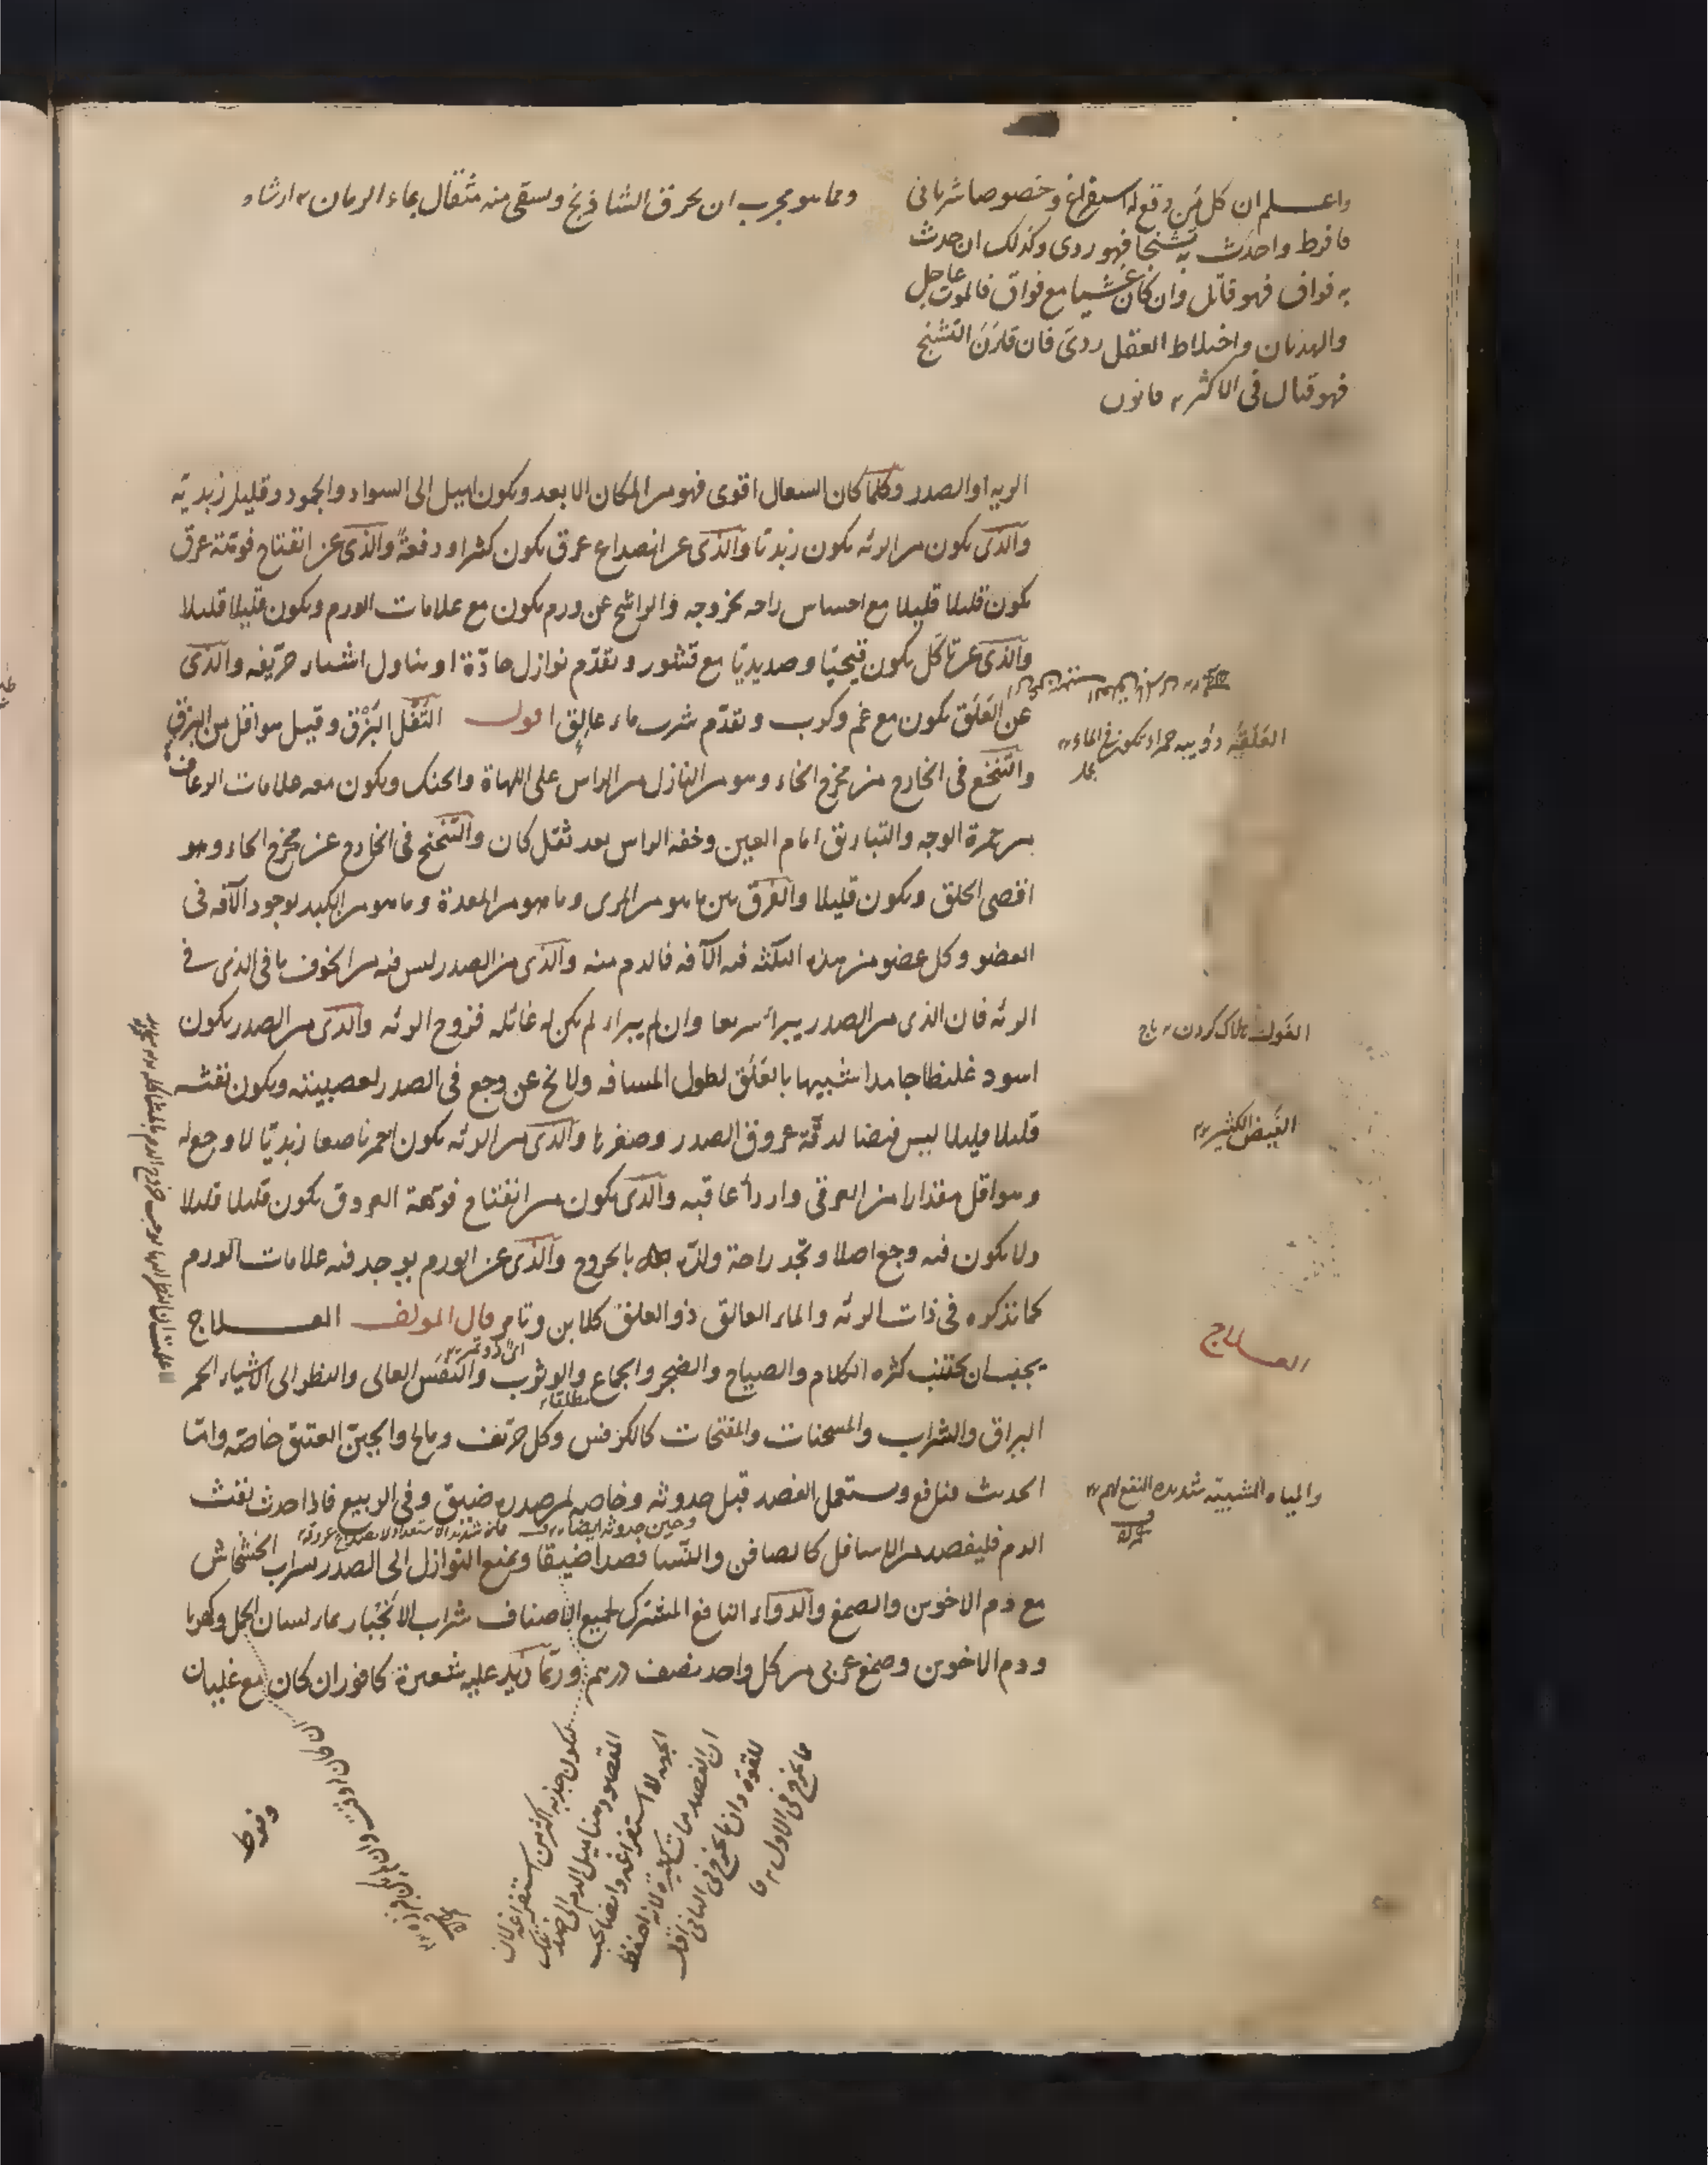 واعلم ان كل من وقع له استفراغ وخصوصا شربا في
فافرط واحدث به تشنجا فهو ردى وكذلك ان حدث
به فواق فهو قاتل وان كان غشيا مع فواق فالموت عاجل
والهذيان واختلاط العقل ردى فان قارن التشنج
فهو قتال فى الاكثر قانون
ومما هو مجرب ان يحرق الشاذنج ويسقى منه مثقال بماء الرمان ارشاد
الريه او الصدر وكلما كان السعال اقوى فهو من المكان الابعد ويكون اميل الى السواد والجمود وقليل زبديته
والذى يكون من الرئه يكون زبديا والذى عن انصداع عرق يكون كثيرا ودفعة والذى عن انفتاح فوهة عرق
يكون قليلا قليلا مع احساس راحه بخروجه والراشح عن ورم يكون مع علامات الورم ويكون قليلا قليلا
والذى عن تاكل يكون قيحيا وصديديا مع قشور وتقدم نوازل حادة او تناول اشياء حريفه والذى
عن العلق يكون مع غم وكرب وتقدم شرب ماء عالق اقول التفل البزق وقيل هو اقل من البزق
والتنخع فى الخارج من مخرج الخاء وهو من النازل من الراس على اللهاة والحنك ويكون معه علامات الرعاف
من حمرة الوجه والتباريق امام العين وخفه الراس بعد ثقل كان والتنحنح فى الخارج عن مخرج الحاء وهو
اقصى الحلق ويكون قليلا والفرق بين ما هو من المرى وما هو من المعدة وما هو من الكبد لوجود الآفه فى
العضو وكل عضو من هذه الثلثه فيه الآفه فالدم منه والذى من الصدر ليس فيه من الخوف ما فى الذى فى
الرئه فان الذى من الصدر يبرأ سريعا وان لم يبراء لم يكن له غائله قروح الرئه والذى من الصدر يكون
اسود غليظا جامدا شبيها بالعلق لطول المسافه ولا يخ عن وجع فى الصدر لعصبيته ويكون نفثه
قليلا قليلا ليس فيضا لدقة عروق الصدر وصغرها والذى من الرئه يكون احمر ناصعا زبديا لا وجع له
وهو اقل مقدارا من العرقى واردأ عاقبه والذى يكون من انفتاح فوهة العروق يكون قليلا قليلا
ولا يكون فيه وجع اصلا وتجد راحة ولذه بالخروج والذى عن الورم يوجد فيه علامات الورم
كما نذكره فى ذات الرئه والماء العالق ذو العلق كلابن وتامر قال المولف العلاج
اى ذو تمر
يجب ان يجتنب كثره الكلام والصياح والضجر والجماع والوثوب والنفس العالى والنظر الى الاشياء الحمر
مطلقا
البراق والشراب والمسخنات والمفتحات كالكرفس وكل حريف ومالح والجبن العتيق خاصة واما
الحديث فنافع ويستعمل الفصد قبل حدوثه وخاصه لمن صدره ضيق وفى الربيع فاذا حدث نفث
وحين حدوثه ايضا
الدم فليفصد من الاسافل كالصافن والنسا فصدا ضيقا ويمنع النوازل الى الصدر بشراب الخشخاش
مع دم الاخوين والصمغ والدواء النافع المشترك لجميع الاصناف شراب الانجبار بماء لسان الحمل وكهربا
ودم الاخوين وصمغ عربى من كل واحد نصف درهم وربما زيد عليه شعيرة كافور ان كان مع غليان
العلقة دويبه حمراء تكون فى الماء
بحار
الغول هلاك كردن تاج
الفيض الكثير
العلاج
والمياه الشبية شديدة النفع لهم
فيكون جذبه اكثر من استفراغه لان
المقصود هنا ميل الدم الى ضد تلك
الجهه لا استفراغه وايضا يجب
للقوة وان ما يخرج فى الثانى اقل
مما يخرج فى الاول